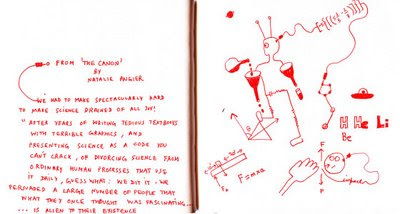 FROM 'THE CANON'
BY
NATALIE ANGIER
WE HAD TO MAKE SPECTACULARLY HARD
TO MAKE SCIENCE DRAINED OF ALL JOY!
"AFTER YEARS OF WRITING TEDIOUS TEXTBOOKS
WITH TERRIBLE GRAPHICS, AND
PRESENTING SCIENCE AS A CODE YOU
CAN'T CRACK, OF DIVORCING SCIENCE FROM
ORDINARY HUMAN PROCESSES THAT USE
IT DAILY, GUESS WHAT: WE DID IT. WE
PERSUADED A LARGE NUMBER OF PEOPLE THAT
WHAT THEY ONCE THOUGHT WAS FASCINATING...
... IS ALIEN TO THEIR EXISTENCE
H He Li
Be
F=ma
F
F